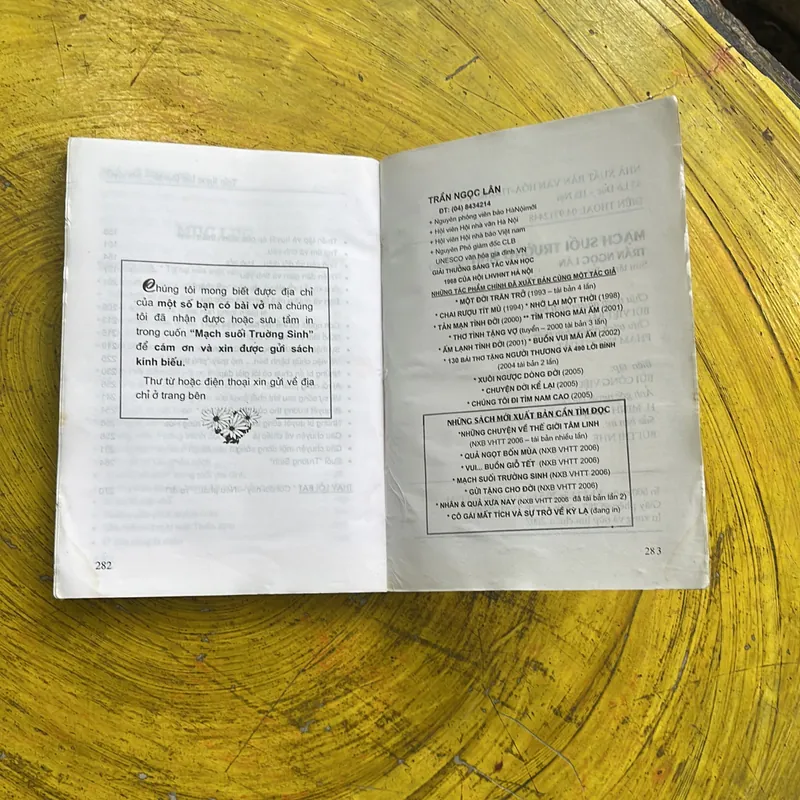 Chúng tôi mong biết được địa chỉ
của một số bạn có bài vở mà chúng
tôi đã nhận được hoặc sưu tầm in
trong cuốn “Mạch suối Truờng Sinh”
để cảm ơn và xin được gửi sách
kính biếu.
Thư từ hoặc điện thoại xin gửi về địa
chỉ ở trang bên
282
TRẦN NGỌC LÂN
ĐT: (04) 8434214
+ Nguyên phóng viên báo HàNộimới
+ Hội viên Hội nhà văn Hà Nội
+ Hội viên Hội nhà báo Việt nam
+ Nguyên Phó giám đốc CLB
UNESCO văn hóa gia đình VN
GIẢI THƯỞNG SÁNG TÁC VĂN HỌC
1968 CỦA HỘI LHVHNT HÀ NỘI
NHỮNG TÁC PHẨM CHÍNH ĐÃ XUẤT BẢN CÙNG MỘT TÁC GIẢ
* MỘT ĐỜI TRĂN TRỞ (1993 – tái bản 4 lần)
* CHAI RƯỢU TÍT MÙ (1994) * NHỚ LẠI MỘT THỜI (1998)
* TẢN MẠN TÌNH ĐỜI (2000) ** TÌM TRONG MÁI ẤM (2001)
* THƠ TÌNH TẶNG VỢ (tuyển – 2000 tái bản 3 lần)
* ẤM LẠNH TÌNH ĐỜI (2001) * BUỒN VUI MÁI ẤM (2002)
* 130 BÀI THƠ TẶNG NGƯỜI THƯƠNG VÀ 490 LỜI BÌNH
(2004 tái bản 2 lần)
* XUÔI NGƯỢC DÒNG ĐỜI (2005)
* CHUYỆN ĐỜI KỂ LẠI (2005)
* CHÚNG TÔI ĐI TÌM NAM CAO (2005)
NHỮNG SÁCH MỚI XUẤT BẢN CẦN TÌM ĐỌC
*NHỮNG CHUYỆN VỀ THẾ GIỚI TÂM LINH
(NXB VHTT 2006 – tái bản nhiều lần)
* QUẢ NGỌT BỐN MÙA (NXB VHTT 2006)
* VUI... BUỒN GIỖ TẾT (NXB VHTT 2006)
* MẠCH SUỐI TRƯỜNG SINH (NXB VHTT 2006)
* GỬI TẶNG CHO ĐỜI (NXB VHTT 2006)
* NHÂN & QUẢ XƯA NAY (NXB VHTT 2006 đã tái bản lần 2)
* CÔ GÁI MẤT TÍCH VÀ SỰ TRỞ VỀ KỲ LẠ (đang in)
283